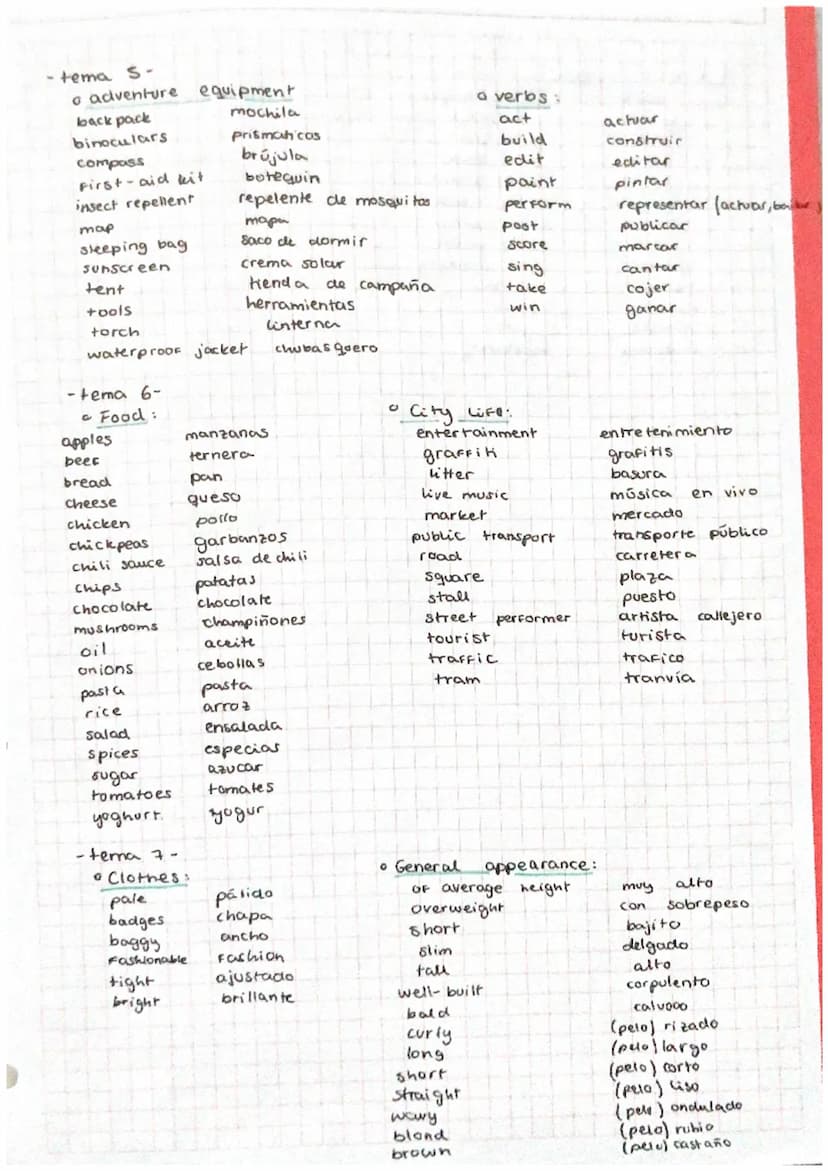 - tema 5 -
o adventure equipment
back pack mochila
binoculars prismaticos
compass brújula
first-aid kit botequin
insect repellent repelente de mosquitos
map mapa
sleeping bag saco de dormir
sunscreen crema solar
tent tienda de campaña
tools herramientas
torch linterna
waterproof jacket chubasquero
o verbs:
act actuar
build construir
edit editar
paint pintar
perform representar (actuar, bailar)
post publicar
score marcar
sing cantar
take cojer
win ganar
- tema 6 -
o Food:
apples manzanas
beef ternera
bread pan
cheese queso
chicken pollo
chickpeas garbanzos
chili sauce salsa de chili
chips patatas
chocolate chocolate
mushrooms champiñones
oil aceite
onions cebollas
pasta pasta
rice arroz
salad ensalada
spices especias
sugar azucar
tomatoes tomates
yoghurt yogur
o City Life:
entertainment entretenimiento
graffiti grafitis
litter basura
live music música en vivo
market mercado
public transport transporte público
road carretera
square plaza
stall puesto
street performer artista callejero
tourist turista
traffic trafico
tram tranvía
- tema 7 -
o Clothes:
pale pálido
badges chapa
baggy ancho
Fashionable Fashion
tight ajustado
bright brillante
o General appearance:
of average height muy alto
overweight con sobrepeso
short bajito
slim delgado
tall alto
well-built corpulento
bald calvooo
curly (pelo) rizado
long (pelo) largo
short (pelo) corto
straight (pelo) liso
wavy (pelo) ondulado
blond (pelo) rubio
brown (pelo) castaño